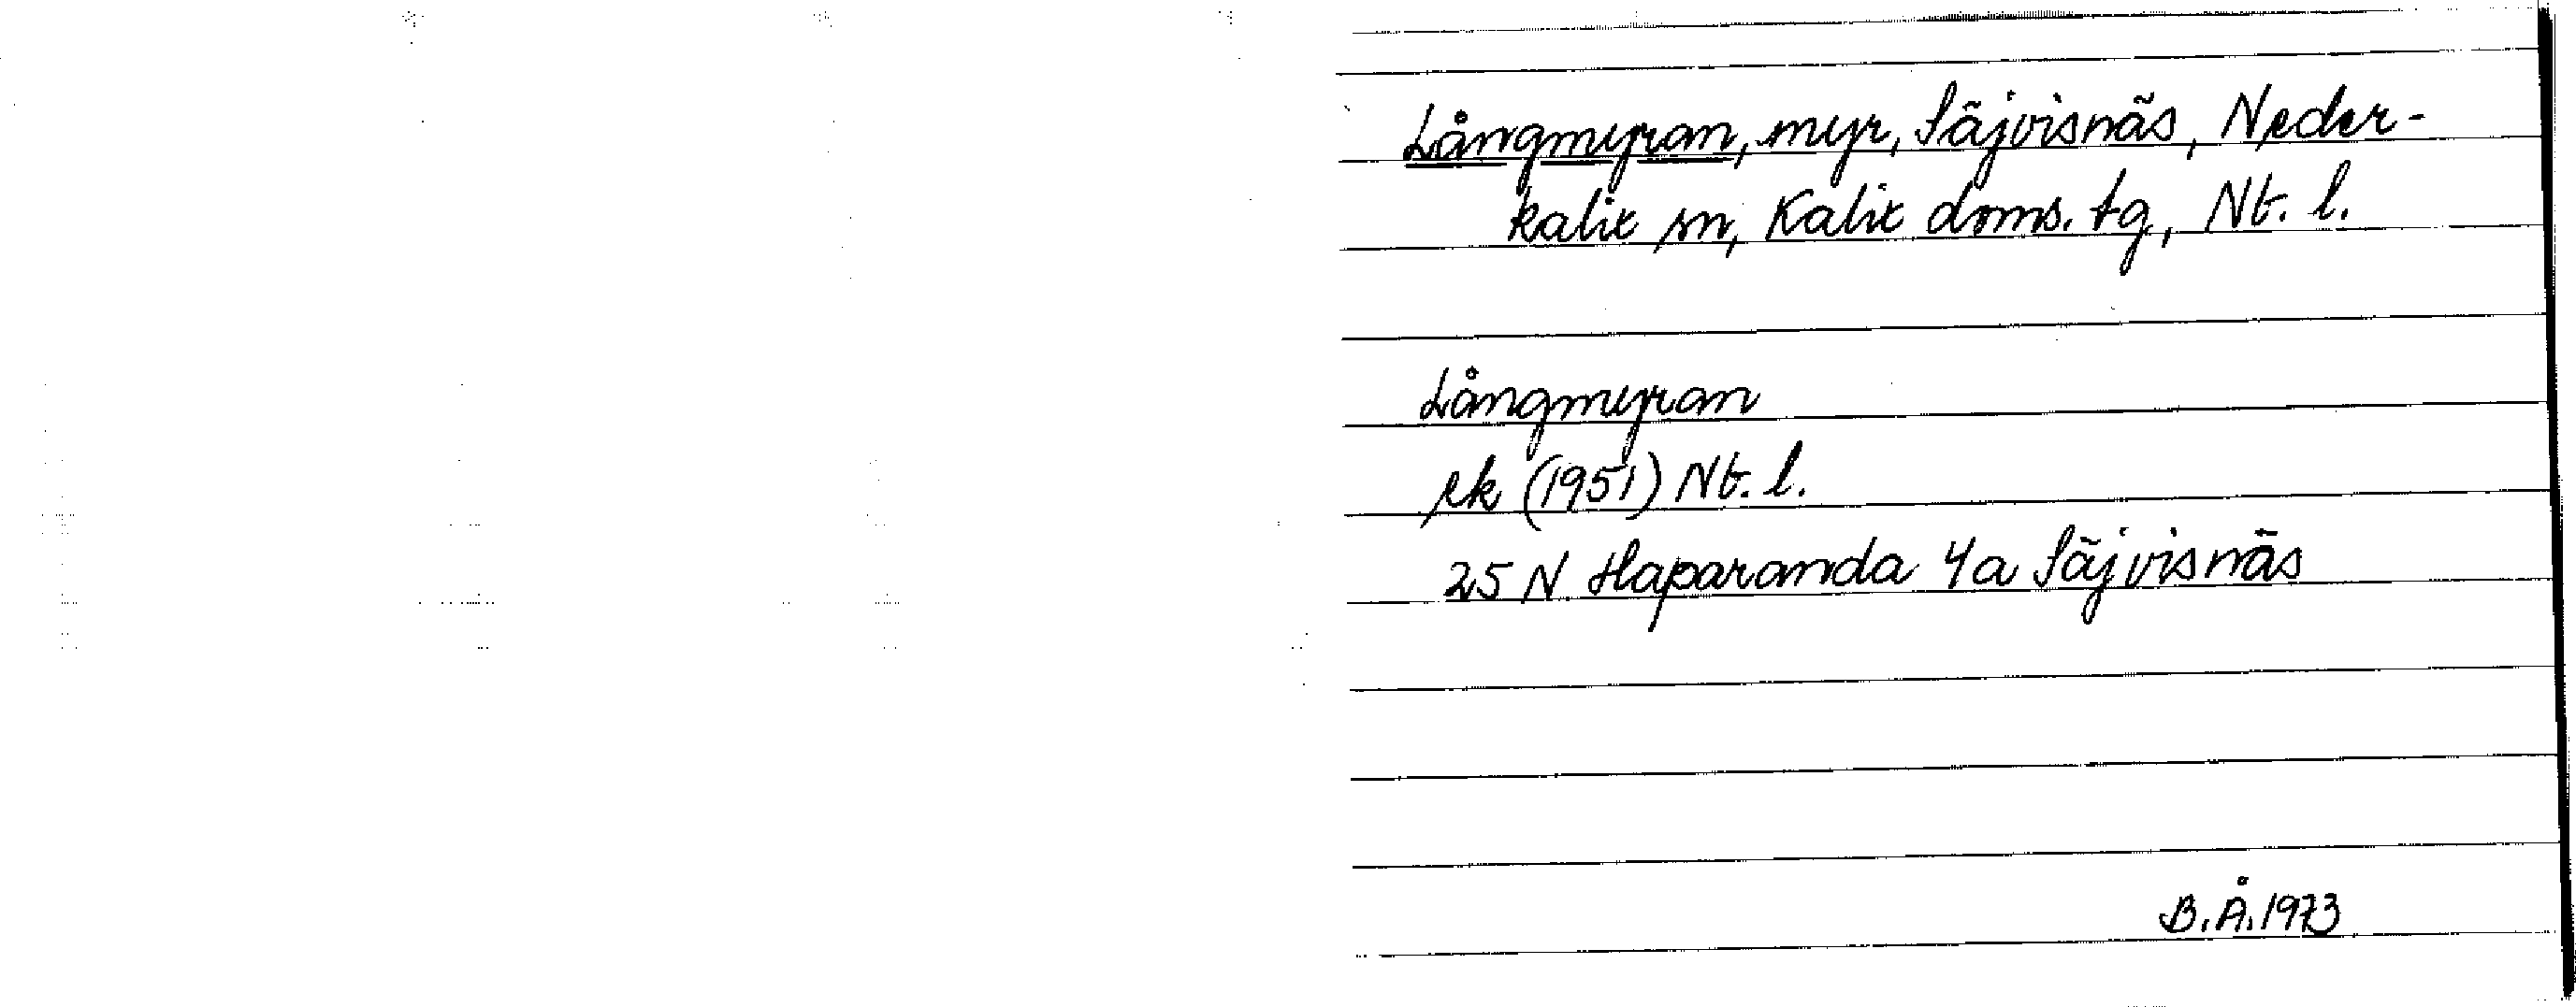 Långmyran, myr, Säjvisnäs, Neder-
kalix sn, Kalix doms. tg, Nb. l.
Långmyran
ek (1951) Nb. l.
25 N Haparanda 4a Säjvisnäs
B.Å. 1973